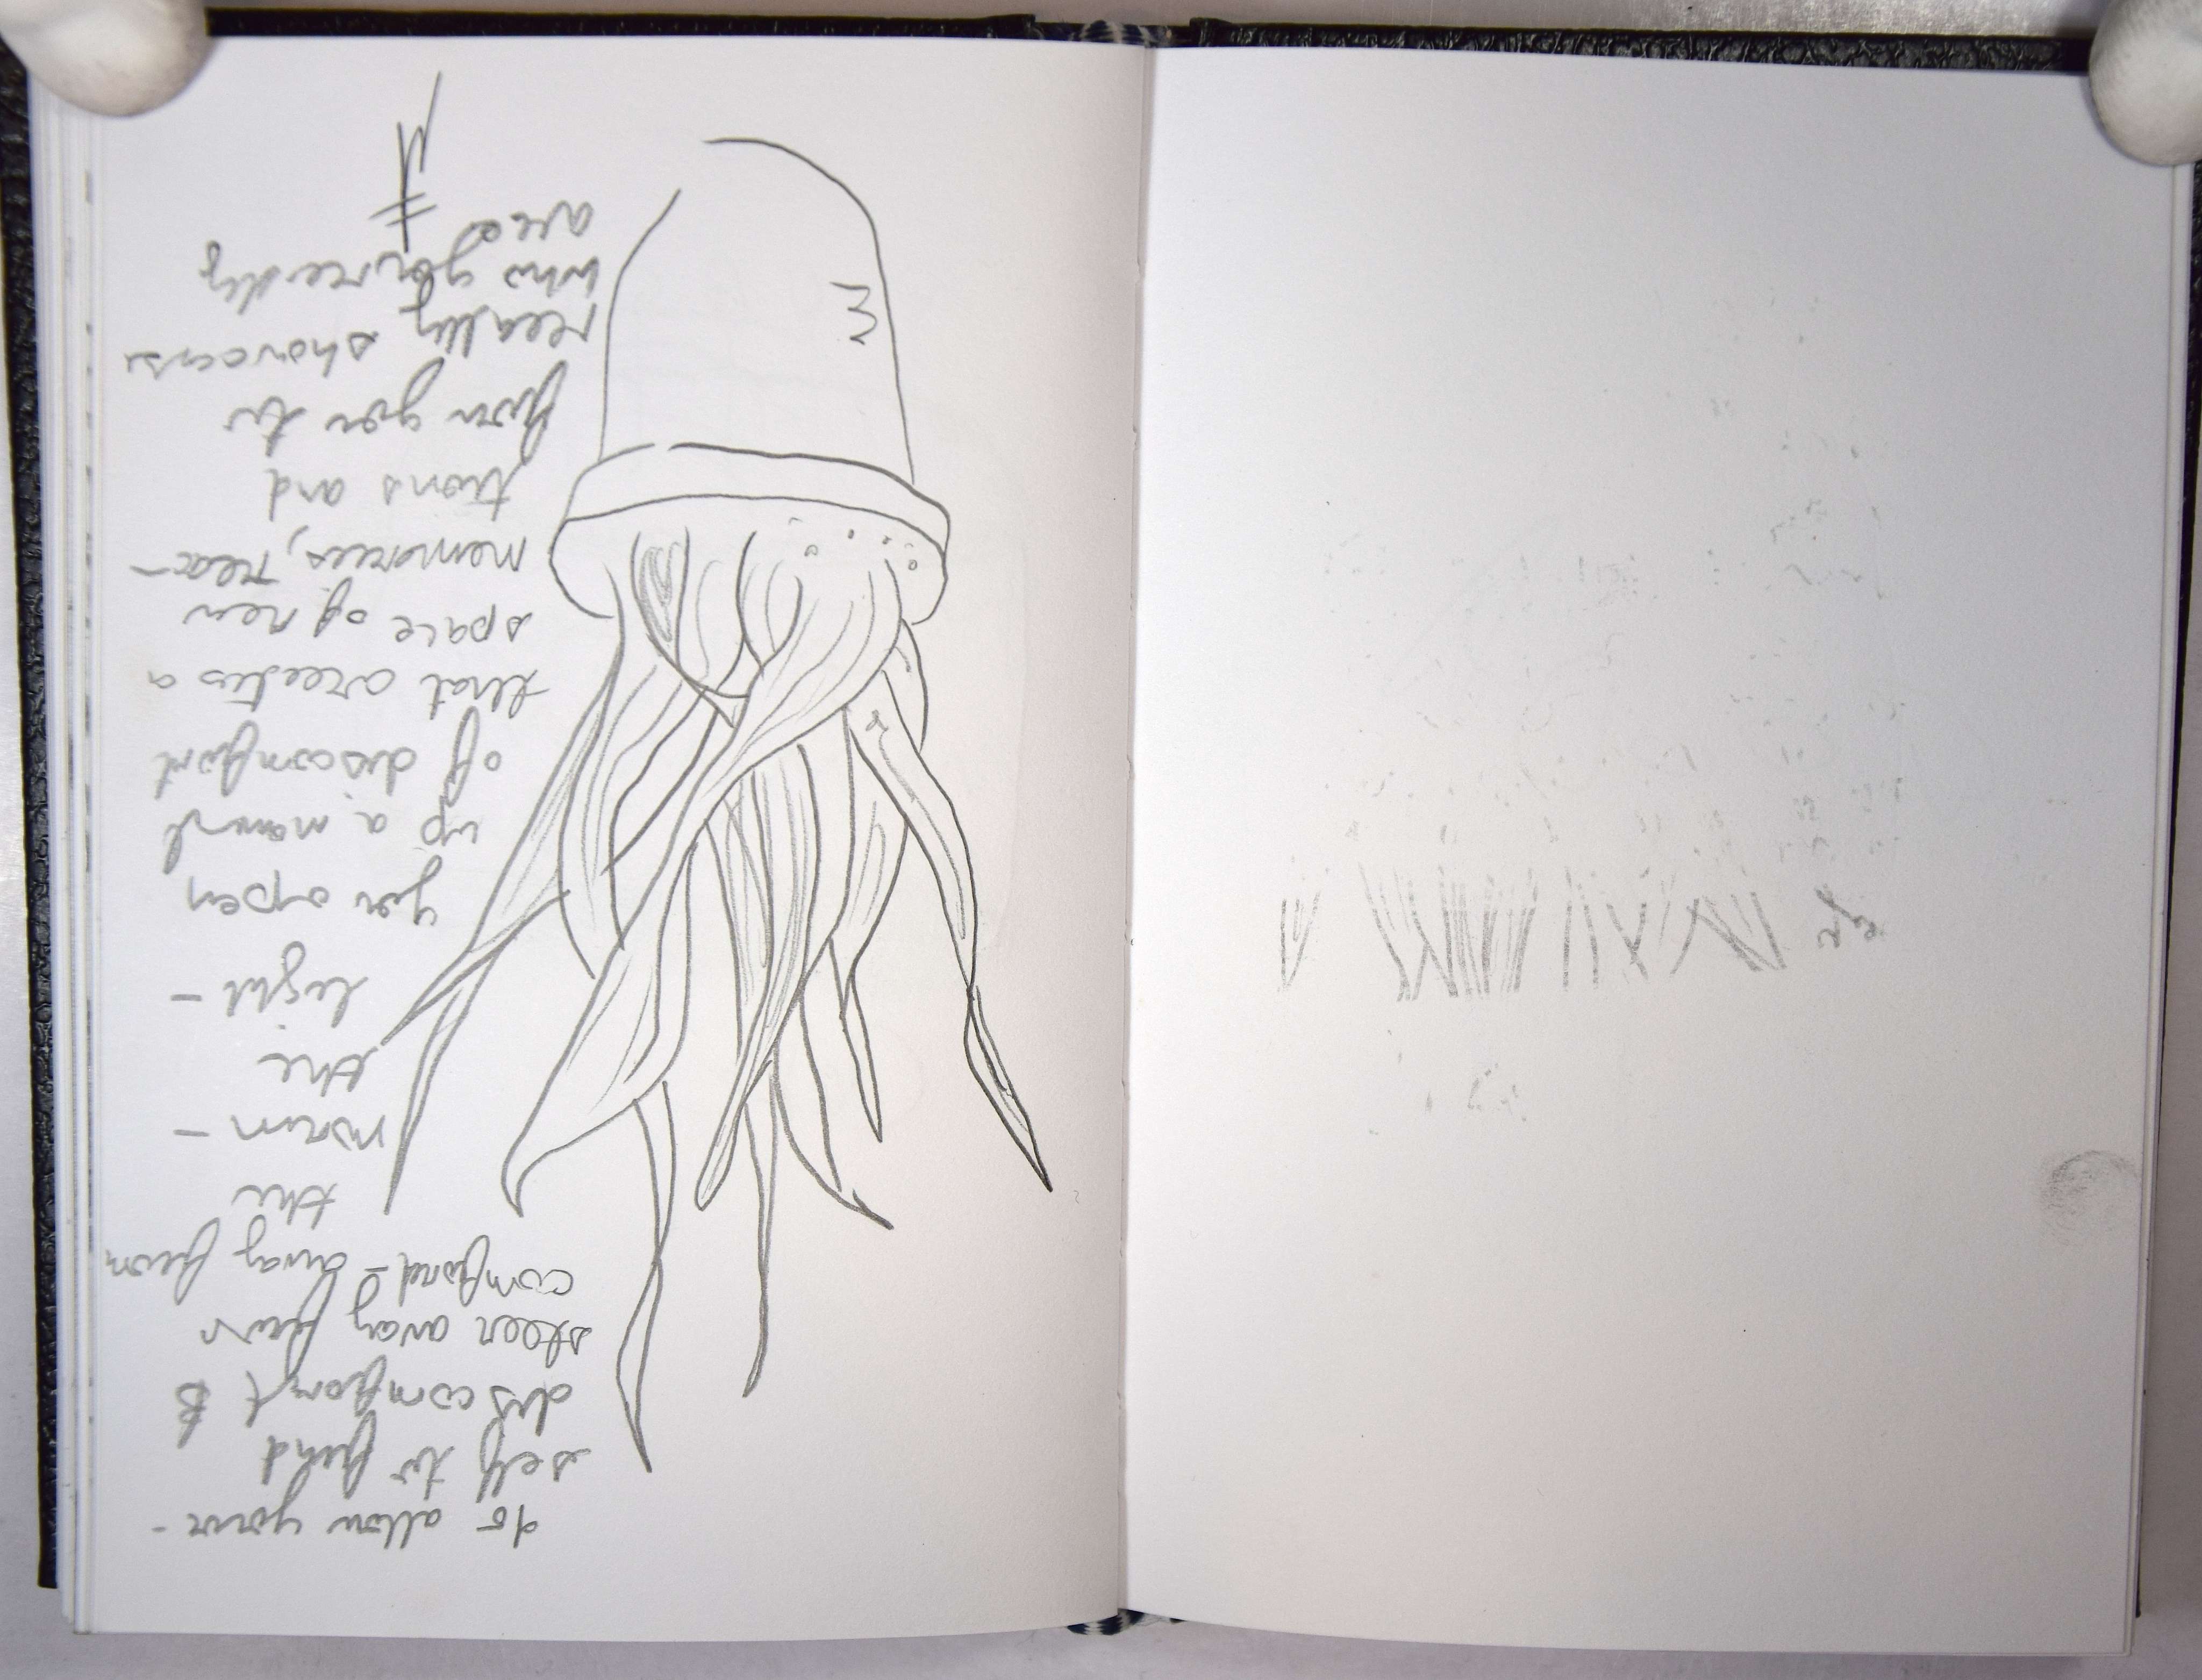 to allow your-
self to find
discomfort &
steer away from
comford - away from
the
warm -
the
light -
you open
up a moment
of discomfort
that creates a
space of new
memories, reac-
tions and
from you to
really showcase
who you really
are